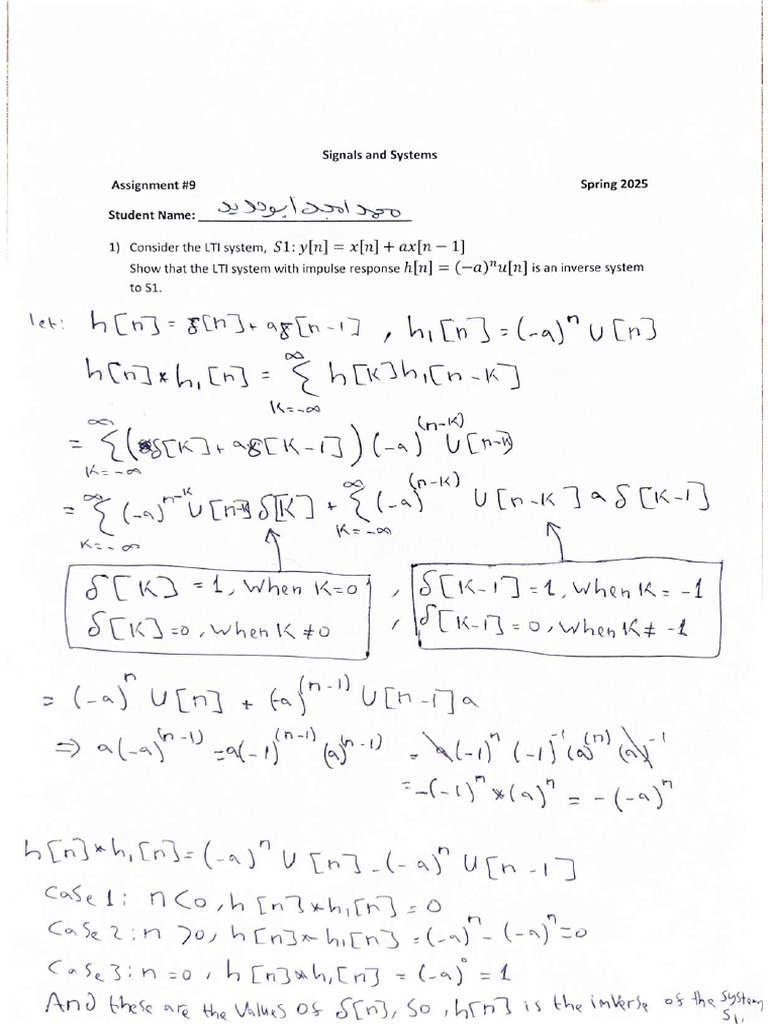 Signals and Systems
Assignment #9 Spring 2025
Student Name:
1) Consider the LTI system, S1: y[n] = x[n] + ax[n − 1]
Show that the LTI system with impulse response h[n] = (−a)ⁿu[n] is an inverse system
to S1.
let: h[n] = δ[n] + aδ[n-1] , h₁[n] = (-a)ⁿ U[n]
h[n] * h₁[n] = ∑_{K=-∞}^{∞} h[K] h₁[n-K]
= ∑_{K=-∞}^{∞} (δ[K] + aδ[K-1]) (-a)^(n-K) U[n-K]
= ∑_{K=-∞}^{∞} (-a)^{n-K} U[n-K] δ[K] + ∑_{K=-∞}^{∞} (-a)^(n-K) U[n-K] a δ[K-1]
δ[K] = 1, when K=0 , δ[K-1] = 1, when K = -1
δ[K] = 0, when K ≠ 0 , δ[K-1] = 0, when K ≠ -1
= (-a)ⁿ U[n] + (-a)^(n-1) U[n-1] a
⇒ a(-a)^(n-1) = a(-1)^(n-1) (a)^(n-1) = a(-1)ⁿ (-1)⁻¹ (a)^(n) (a)⁻¹
= -(-1)ⁿ * (a)ⁿ = -(-a)ⁿ
h[n] * h₁[n] = (-a)ⁿ U[n] - (-a)ⁿ U[n-1]
Case 1: n<0, h[n] * h₁[n] = 0
Case 2: n >0, h[n] * h₁[n] = (-a)ⁿ - (-a)ⁿ = 0
Case 3: n = 0, h[n] * h₁[n] = (-a)⁰ = 1
And these are the values of δ[n], so, h[n] is the inverse of the system
S1.